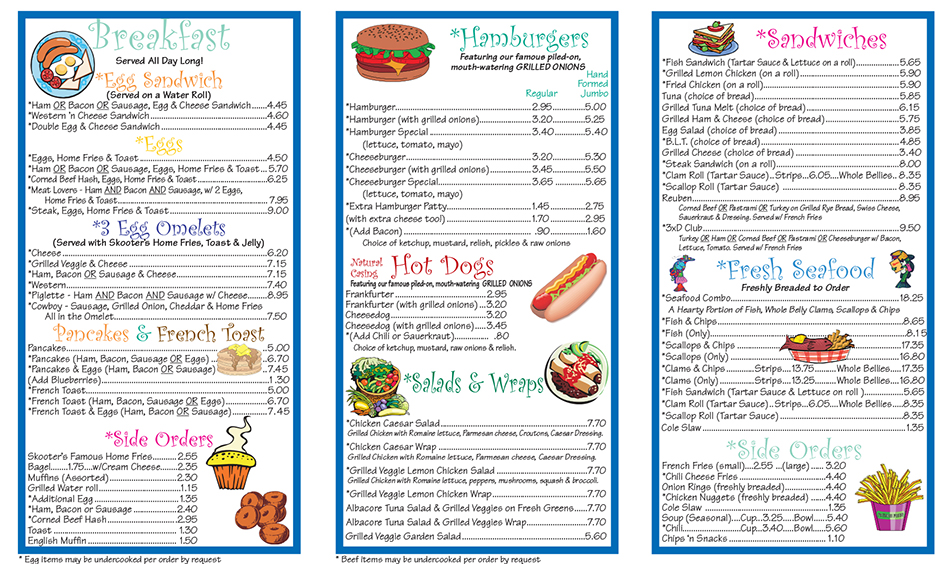 Breakfast
Served All Day Long!
*Egg Sandwich
(Served on a Water Roll)
*Ham OR Bacon OR Sausage, Egg & Cheese Sandwich......4.45
*Western 'n Cheese Sandwich......4.60
*Double Egg & Cheese Sandwich......4.45
*Eggs
*Eggs, Home Fries & Toast......4.50
*Ham OR Bacon OR Sausage, Eggs, Home Fries & Toast...5.70
*Corned Beef Hash, Eggs, Home Fries & Toast......6.25
*Meat Lovers - Ham AND Bacon AND Sausage, w/ 2 Eggs,
Home Fries & Toast......7.95
*Steak, Eggs, Home Fries & Toast......9.00
*3 Egg Omelets
(Served with Skooter's Home Fries, Toast & Jelly)
*Cheese......6.20
*Grilled Veggie & Cheese......7.15
*Ham, Bacon OR Sausage & Cheese......7.15
*Western......7.40
*Piglette - Ham AND Bacon AND Sausage w/ Cheese......8.95
*Cowboy - Sausage, Grilled Onion, Cheddar & Home Fries
All in the Omelet......7.50
Pancakes & French Toast
Pancakes......5.00
*Pancakes (Ham, Bacon, Sausage OR Eggs)......6.70
*Pancakes & Eggs (Ham, Bacon OR Sausage)......7.45
(Add Blueberries)......1.30
*French Toast......5.00
*French Toast (Ham, Bacon, Sausage OR Eggs)......6.70
*French Toast & Eggs (Ham, Bacon, OR Sausage)......7.45
*Side Orders
Skooter's Famous Home Fries......2.55
Bagel......1.75...w/Cream Cheese......2.35
Muffins (Assorted)......2.30
Grilled Water roll......1.15
*Additional Egg......1.35
*Ham, Bacon or Sausage......2.40
*Corned Beef Hash......2.95
Toast......1.30
English Muffin......1.50
* Egg Items may be undercooked per order by request
*Hamburgers
Featuring our famous piled-on,
mouth-watering GRILLED ONIONS
Regular
Hand Formed Jumbo
*Hamburger......2.95......5.00
*Hamburger (with grilled onions)......3.20......5.25
*Hamburger Special......3.40......5.40
(lettuce, tomato, mayo)
*Cheeseburger......3.20......5.30
*Cheeseburger (with grilled onions)......3.45......5.50
*Cheeseburger Special......3.65......5.65
(lettuce, tomato, mayo)
*Extra Hamburger Patty......1.45......2.75
(with extra cheese tool)......1.70......2.95
*(Add Bacon)......90......1.60
Choice of ketchup, mustard, relish, pickles & raw onions
Natural Casing
Hot Dogs
Featuring our famous piled-on, mouth-watering GRILLED ONIONS
Frankfurter......2.95
Frankfurter (with grilled onions)...3.20
Cheesedog......3.20
Cheesedog (with grilled onions)......3.45
*(Add Chili or Sauerkraut)......80
Choice of ketchup, mustard, raw onions & relish.
*Salads & Wraps
*Chicken Caesar Salad......7.70
Grilled Chicken with Romaine lettuce, Parmesan cheese, Croutons, Caesar Dressing.
*Chicken Caesar Wrap......7.70
Grilled Chicken with Romaine lettuce, Parmesan cheese, Caesar Dressing.
*Grilled Veggie Lemon Chicken Salad......7.70
Grilled Chicken with Romaine lettuce, peppers, mushrooms, squash & broccoli.
*Grilled Veggie Lemon Chicken Wrap......7.70
Albacore Tuna Salad & Grilled Veggies on Fresh Greens......7.70
Albacore Tuna Salad & Grilled Veggies Wrap......7.70
Grilled Veggie Garden Salad......5.60
* Beef Items may be undercooked per order by request
*Sandwiches
*Fish Sandwich (Tartar Sauce & Lettuce on a roll)......5.65
*Grilled Lemon Chicken (on a roll)......5.90
*Fried Chicken (on a roll)......5.90
Tuna (choice of bread)......5.85
Grilled Tuna Melt (choice of bread)......6.15
Grilled Ham & Cheese (choice of bread)......5.75
Egg Salad (choice of bread)......3.85
*B.L.T. (choice of bread)......4.85
Grilled Cheese (choice of bread)......3.40
*Steak Sandwich (on a roll)......8.00
*Clam Roll (Tartar Sauce)...Strips...6.05....Whole Bellies.. 8.35
*Scallop Roll (Tartar Sauce)......8.35
Reuben......8.95
Corned Beef OR Pastrami OR Turkey on Grilled Rye Bread, Swiss Cheese,
Sauerkraut & Dressing. Served w/ French Fries
*3xD Club......9.50
Turkey OR Ham OR Corned Beef OR Pastrami OR Cheeseburger w/ Bacon,
Lettuce, Tomato. Served w/ French Fries
*Fresh Seafood
Freshly Breaded to Order
*Seafood Combo......18.25
A Hearty Portion of Fish, Whole Belly Clams, Scallops & Chips
*Fish & Chips......8.65
*Fish (Only)......8.15
*Scallops & Chips......17.35
*Scallops (Only)......16.80
*Clams & Chips......Strips...13.75......Whole Bellies......17.35
*Clams (Only)......Strips...13.25......Whole Bellies......16.80
*Fish Sandwich (Tartar Sauce & Lettuce on a roll)......5.65
*Clam Roll (Tartar Sauce)...Strips...6.05....Whole Bellies......8.35
*Scallop Roll (Tartar Sauce)......8.35
Cole Slaw......1.35
*Side Orders
French Fries (small)....2.55 ...(large)...... 3.20
*Chili Cheese Fries......4.40
Onion Rings (freshly breaded)......4.40
*Chicken Nuggets (freshly breaded)......4.40
Cole Slaw......1.35
Soup (Seasonal)....Cup...3.25.....Bowl......5.40
*Chili......Cup...3.40.....Bowl......5.60
Chips 'n Snacks......1.10